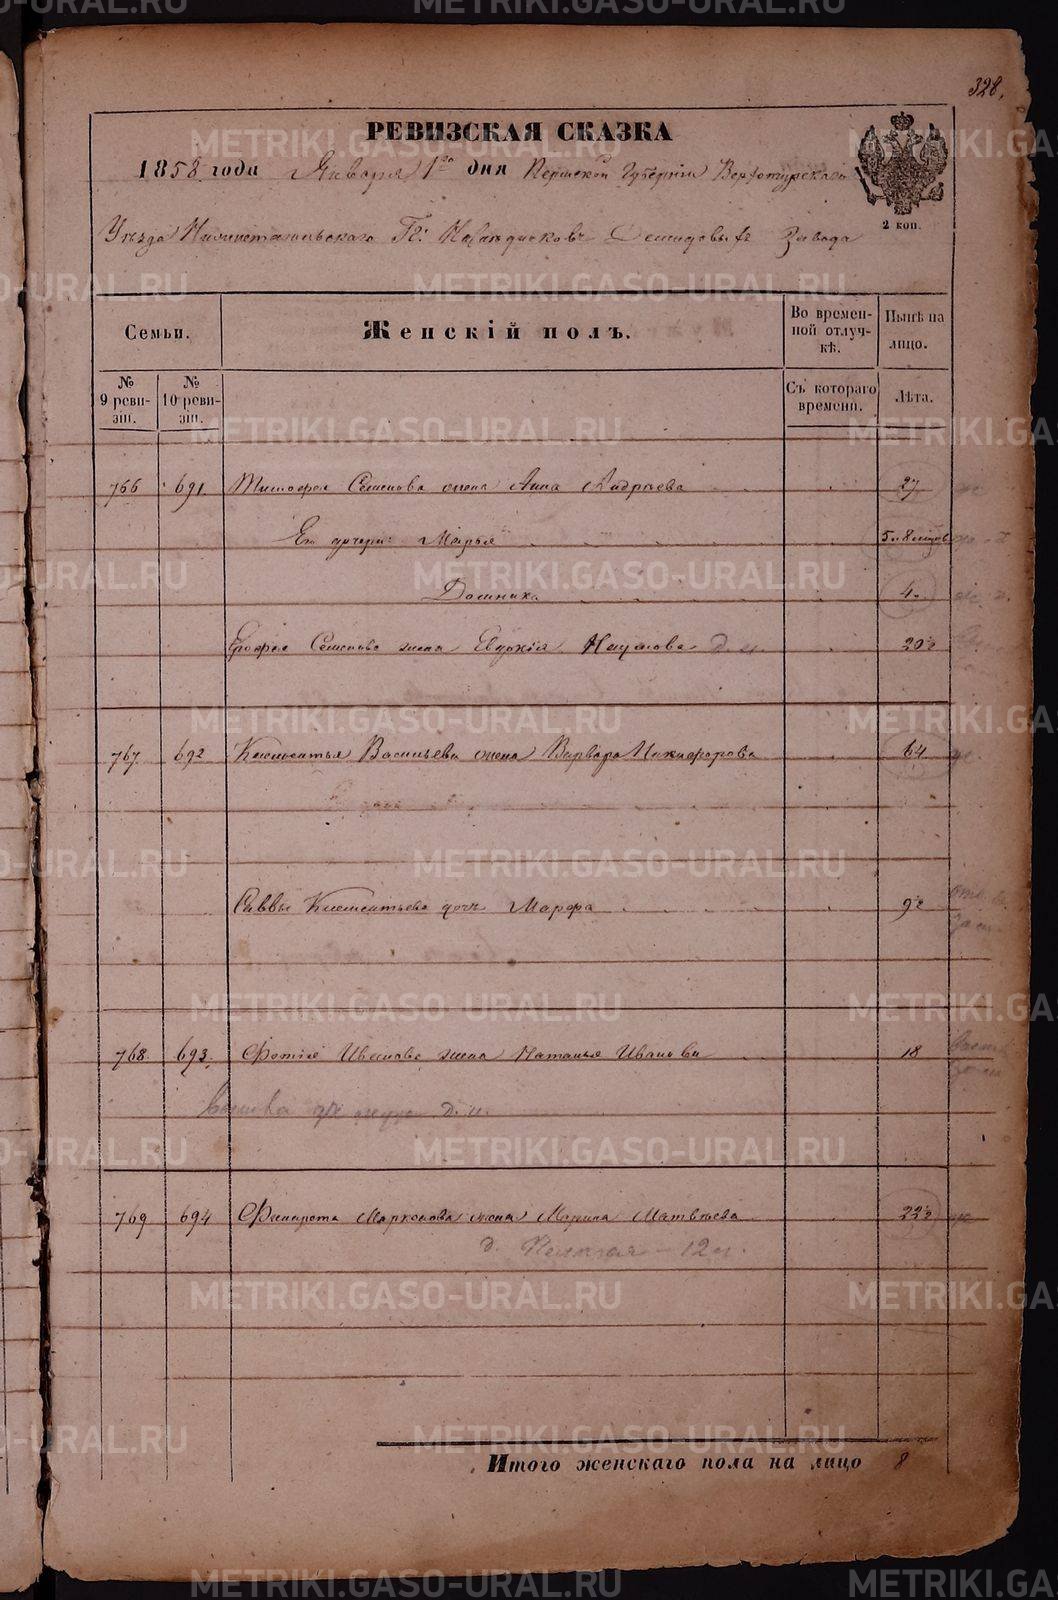 328.
РЕВИЗСКАЯ СКАЗКА
1858 года Января 1го дня Пермской Губернiи Верхотурскаго
Уѣзда Нижнетагильскаго Гг: Наслѣдниковъ Демидовыхъ Завода
2 коп.
Семьи.
Женскiй полъ.
Во времен-
ной отлуч-
кѣ.
Нынѣ на
лицо.
№
9 реви-
зiи.
№
10 реви-
зiи.
Съ котораго
времени.
Лѣта.
766 691. Тимофея Семенова жена Анна Андреева 27
Ея дочери: Марья 5 и 8 мѣсяц
Домника 4.
Ерофея Семенова жена Евдокiя Наумова 20½
767 692 Климентья Васильева жена Варвара Никифорова 64
Саввы Климентьева дочь Марфа 9½
768 693. Фотiя Иванова жена Наталья Иванова 18
769 694 Филарета Маркелова жена Марина Матвѣева 22½
д. 12 м.
Итого женскаго пола на лицо 8
METRIKI.GASO-URAL.RU